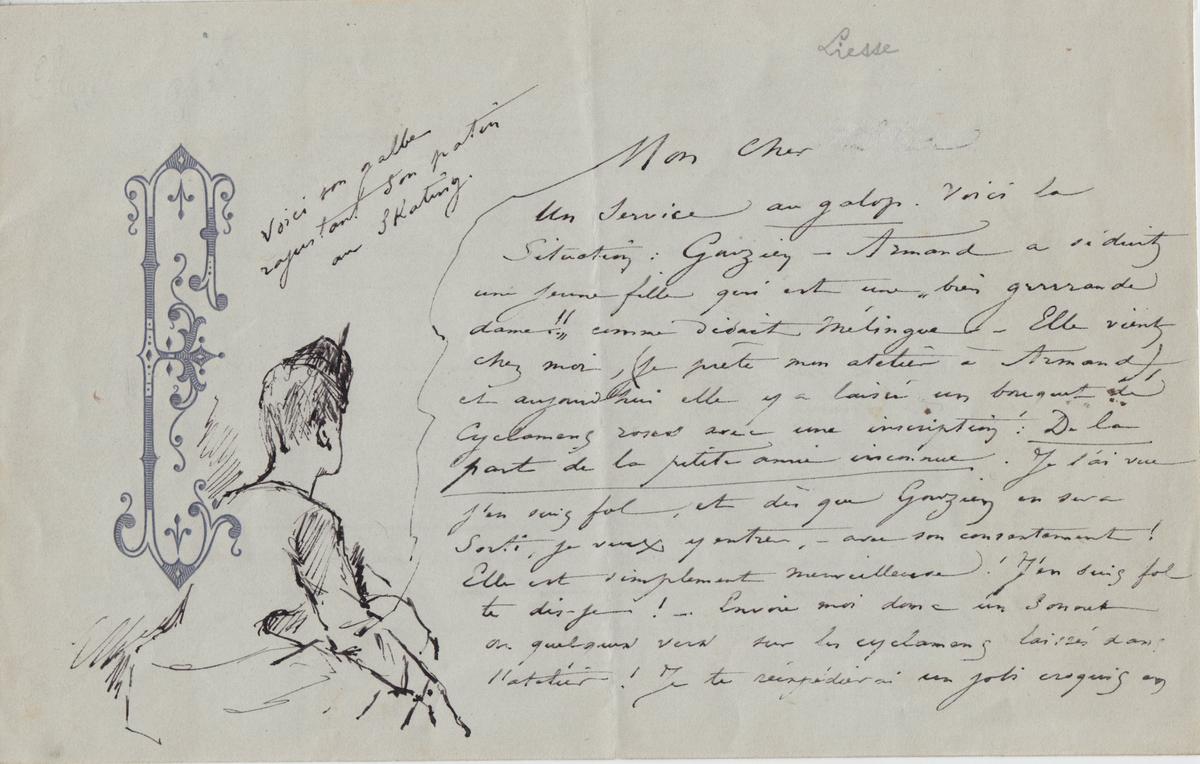 Liesse
Voici son galbe
rajustant son patin
au Skating.
Mon cher
Un Service au galop. Voici la
Situation : Gouzien – Armand a séduit
une jeune fille qui est une „bien grrrrande
dame!!„ comme disait Mélingue. – Elle vient
chez moi, (je prête mon atelier à Armand)
et aujourd'hui elle y a laissé un bouquet de
Cyclamens roses avec une inscription : De la
part de la petite amie inconnue. Je l'ai vue
j'en suis fol, et dès que Gouzien en sera
Sorti, je veux y entrer, – avec son consentement !
Elle est simplement merveilleuse ! J'en suis fol
te dis-je ! – Envoie moi donc un Sonnet
ou quelques vers sur les cyclamens laissés dans
l'atelier ! Je te réexpédierai un joli croquis en